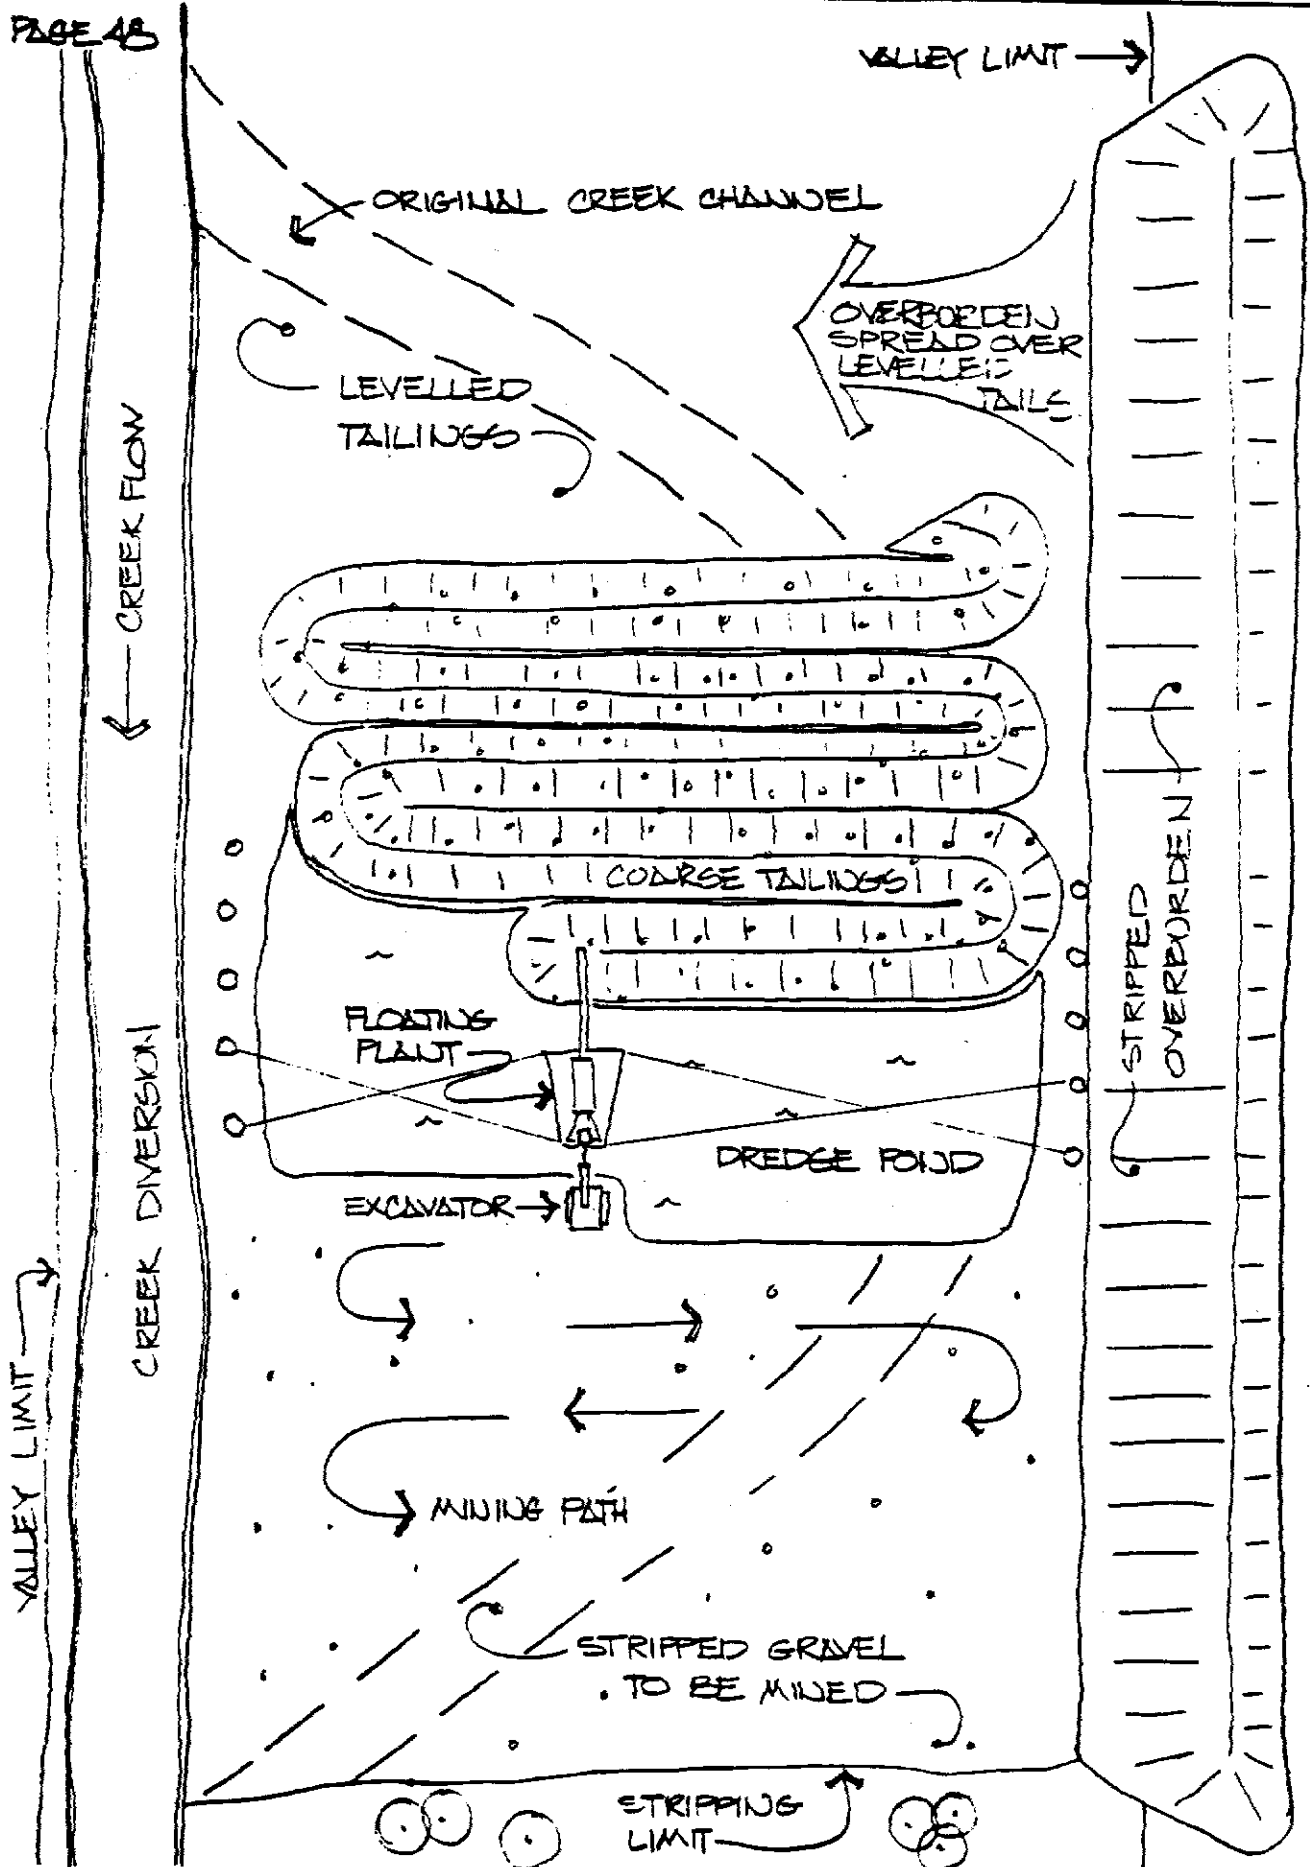 PAGE 48
VALLEY LIMIT
ORIGINAL CREEK CHANNEL
OVERBURDEN
SPREAD OVER
LEVELLED
TAILS
LEVELLED
TAILINGS
CREEK FLOW
COARSE TAILINGS
STRIPPED
OVERBURDEN
FLOATING
PLANT
DREDGE POND
EXCAVATOR
CREEK DIVERSION
VALLEY LIMIT
MINING PATH
STRIPPED GRAVEL
TO BE MINED
STRIPPING
LIMIT